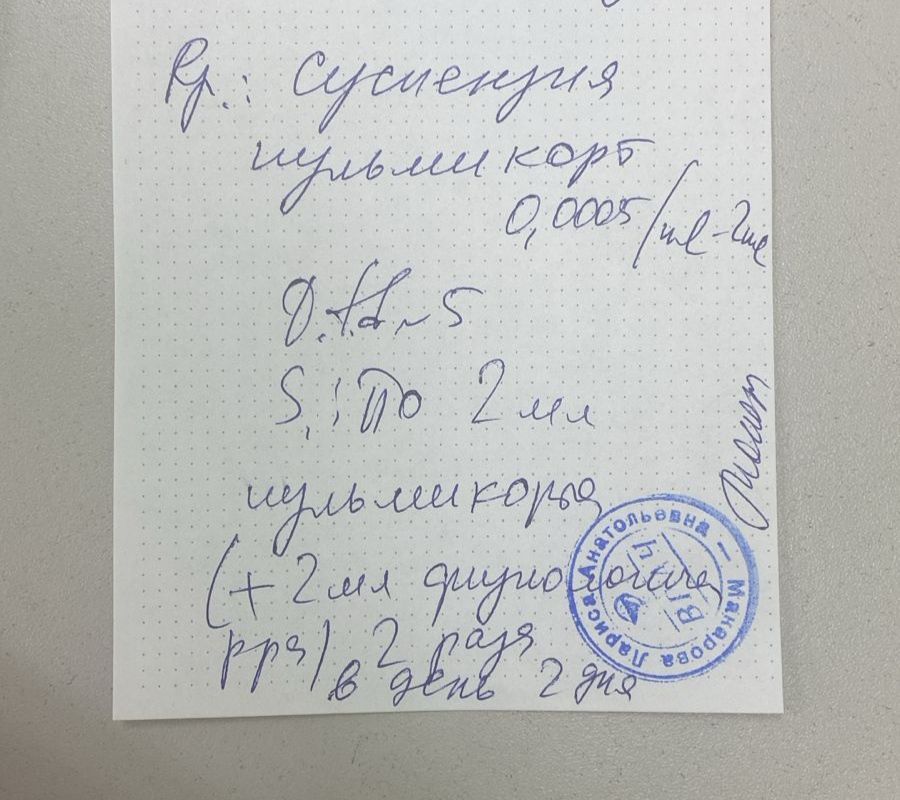 Rp.: Суспензия
пульмикорт
0,0005/ml - 2ml
D.t.d. N 5
S.: По 2 мл
пульмикорта
(+ 2 мл физиологиче
рра) 2 раза
в день 2 дня
Макарова Лариса Анатольевна —
ВРАЧ